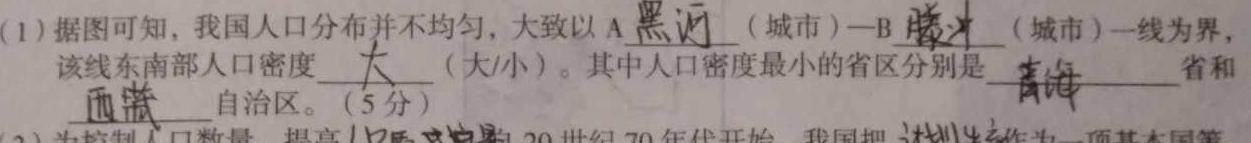 (1)据图可知，我国人口分布并不均匀，大致以 A 黑河 （城市）—B 腾冲 （城市）一线为界，
该线东南部人口密度 大 （大/小）。其中人口密度最小的省区分别是 青海 省和
西藏 自治区。（5分）
(2)为控制人口数量，提高人口 20世纪70年代开始，我国把 计划生育作为一项基本国策